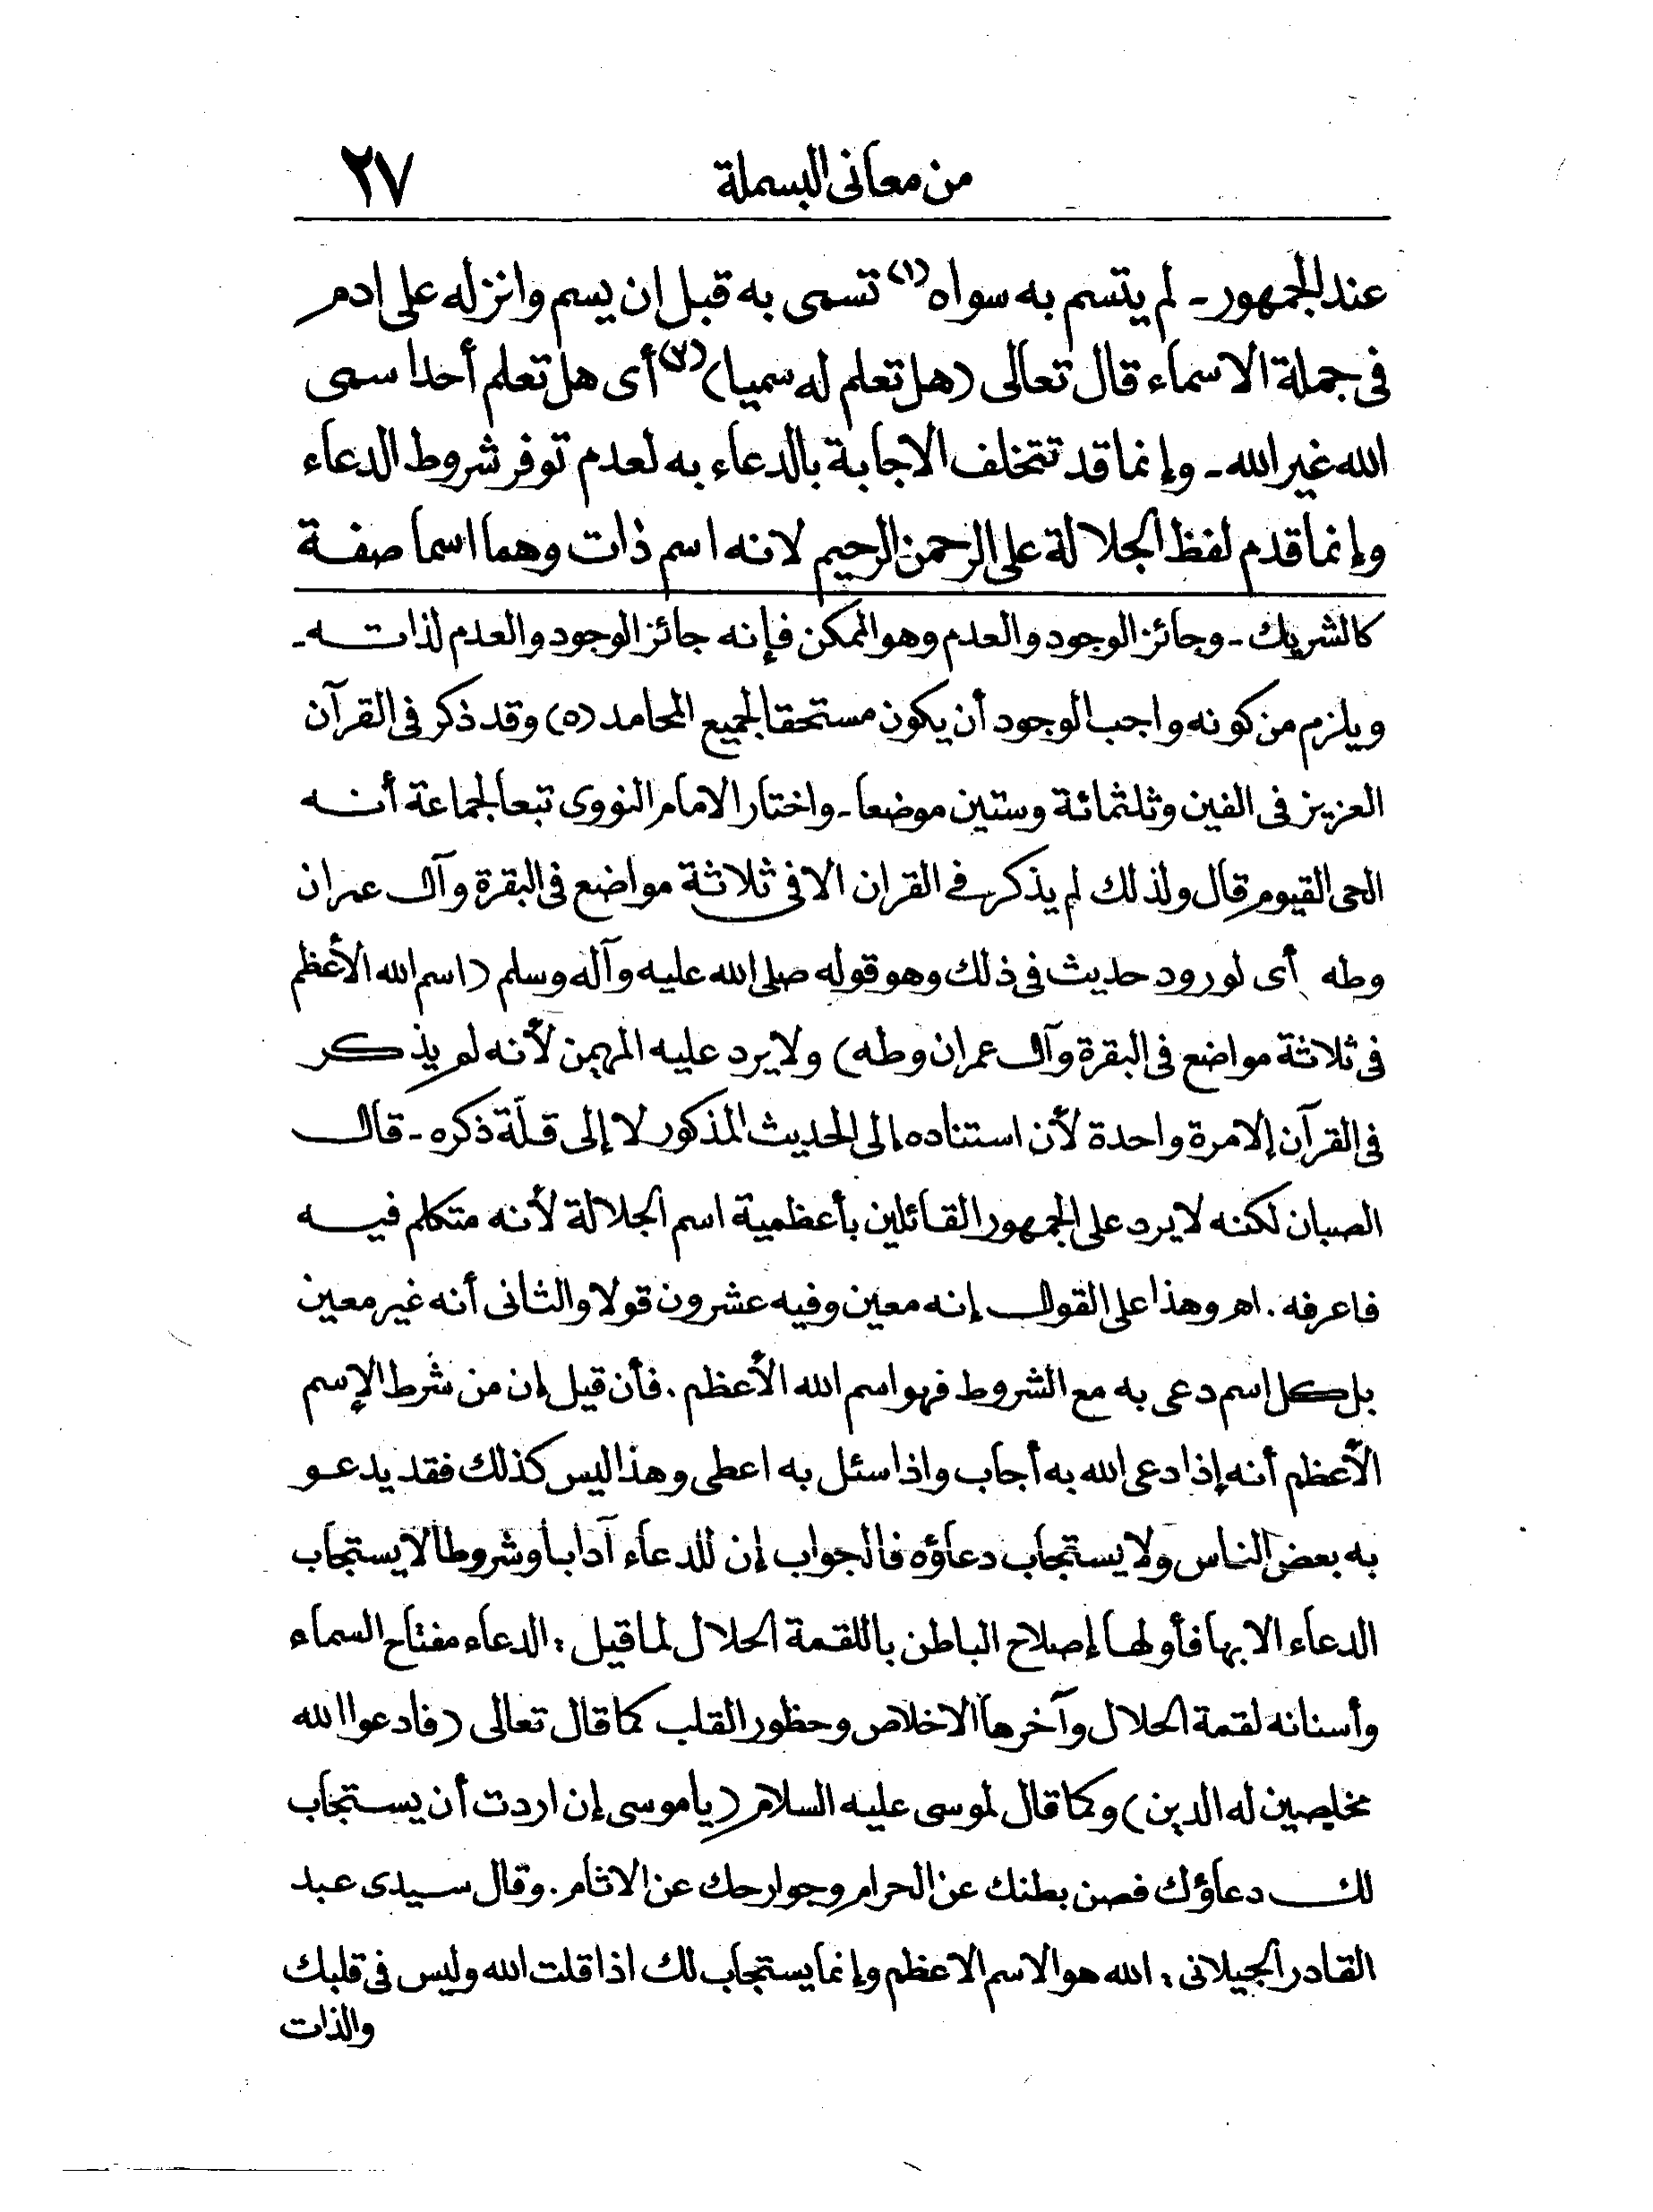 من معانى البسملة ٢٧
عند الجمهور - لم يتسم به سواه (١) تسمى به قبل ان يسم وانزله على ادم
فى جملة الاسماء قال تعالى (هل تعلم له سميا) (٧) أى هل تعلم أحدا سمى
الله غير الله - وإنما قد تتخلف الاجابة بالدعاء به لعدم توفر شروط الدعاء
وإنما قدم لفظ الجلالة على الرحمن الرحيم لانه اسم ذات وهما اسما صفة
كالشريك - وجائز الوجود والعدم وهو الممكن فإنه جائز الوجود والعدم لذاته -
ويلزم من كونه واجب الوجود أن يكون مستحقا لجميع المحامد (٥) وقد ذكر فى القرآن
العزيز فى الفين وثلثمائة وستين موضعا - واختار الامام النووى تبعا لجماعة أنه
الحى القيوم قال ولذلك لم يذكر فى القران الا فى ثلاثة مواضع فى البقرة وآل عمران
وطه أى لورود حديث فى ذلك وهو قوله صلى الله عليه وآله وسلم (اسم الله الأعظم
فى ثلاثة مواضع فى البقرة وآل عمران وطه) ولا يرد عليه المهيمن لأنه لم يذكر
فى القرآن إلا مرة واحدة لأن استناده إلى الحديث المذكور لا إلى قلّة ذكره - قال
الصبان لكنه لا يرد على الجمهور القائلين بأعظمية اسم الجلالة لأنه متكلم فيه
فاعرفه . اهـ وهذا على القول إنه معين وفيه عشرون قولا والثانى أنه غير معين
بل كل اسم دعى به مع الشروط فهو اسم الله الأعظم . فأن قيل إن من شرط الإسم
الأعظم أنه إذا دعى الله به أجاب واذا سئل به اعطى وهذا ليس كذلك فقد يدعو
به بعض الناس ولا يستجاب دعاؤه فالجواب إن للدعاء آدابا وشروطا لا يستجاب
الدعاء الا بها فأولها إصلاح الباطن باللقمة الحلال لما قيل : الدعاء مفتاح السماء
وأسنانه لقمة الحلال وآخرها الاخلاص وحظور القلب كما قال تعالى (فادعوا الله
مخلصين له الدين) وكما قال لموسى عليه السلام (يا موسى إن اردت أن يستجاب
لك دعاؤك فصن بطنك عن الحرام وجوارحك عن الاثام . وقال سيدى عبد
القادر الجيلانى : الله هو الاسم الاعظم وإنما يستجاب لك اذا قلت الله وليس فى قلبك
والذات